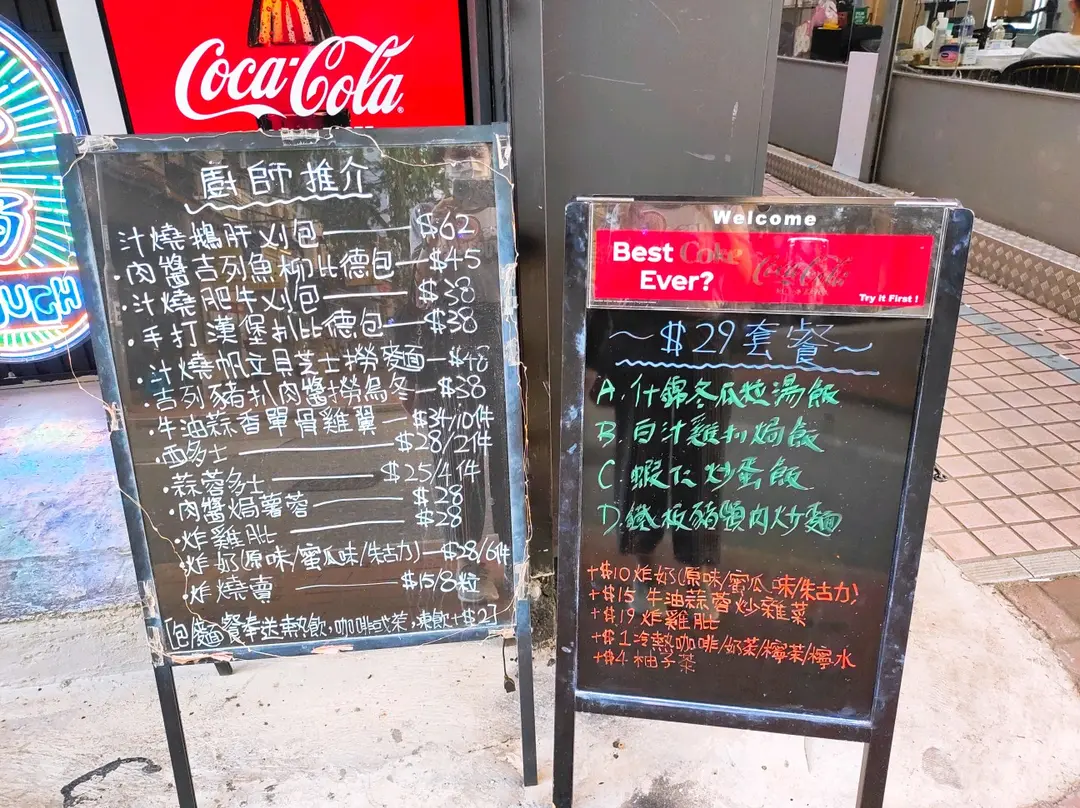 Coca-Cola
廚師推介
汁燒鵝肝刈包 $62
·肉醬吉列魚柳比德包 $45
·汁燒肥牛刈包 $38
·手打漢堡扒比德包 $38
·汁燒帆立貝芝士撈麥面 $48
·吉列豬扒肉醬撈烏冬 $38
·牛油蒜香單骨雞翼 $34/10件
·西多士 $28/2件
·蒜蓉多士 $25/4件
·肉醬焗薯蓉 $28
·炸雞肶 $28
炸奶(原味/蜜瓜味/朱古力) $28/6件
·炸燒賣 $15/8粒
[包麵餐奉送熱飲,咖啡或茶,凍飲+$2]
Welcome
Best Coke
Ever?
Coca-Cola
Try it First !
~$29套餐~
A.什錦冬瓜粒湯飯
B.白汁雞扒焗飯
C.蝦仁炒蛋飯
D.鐵板豬頸肉炒麵
+$10炸奶(原味/蜜瓜味/朱古力)
+$15 牛油蒜蓉炒雜菜
+$19 炸雞肶
+$1冷熱咖啡/奶茶/檸茶/檸水
+$4 柚子茶